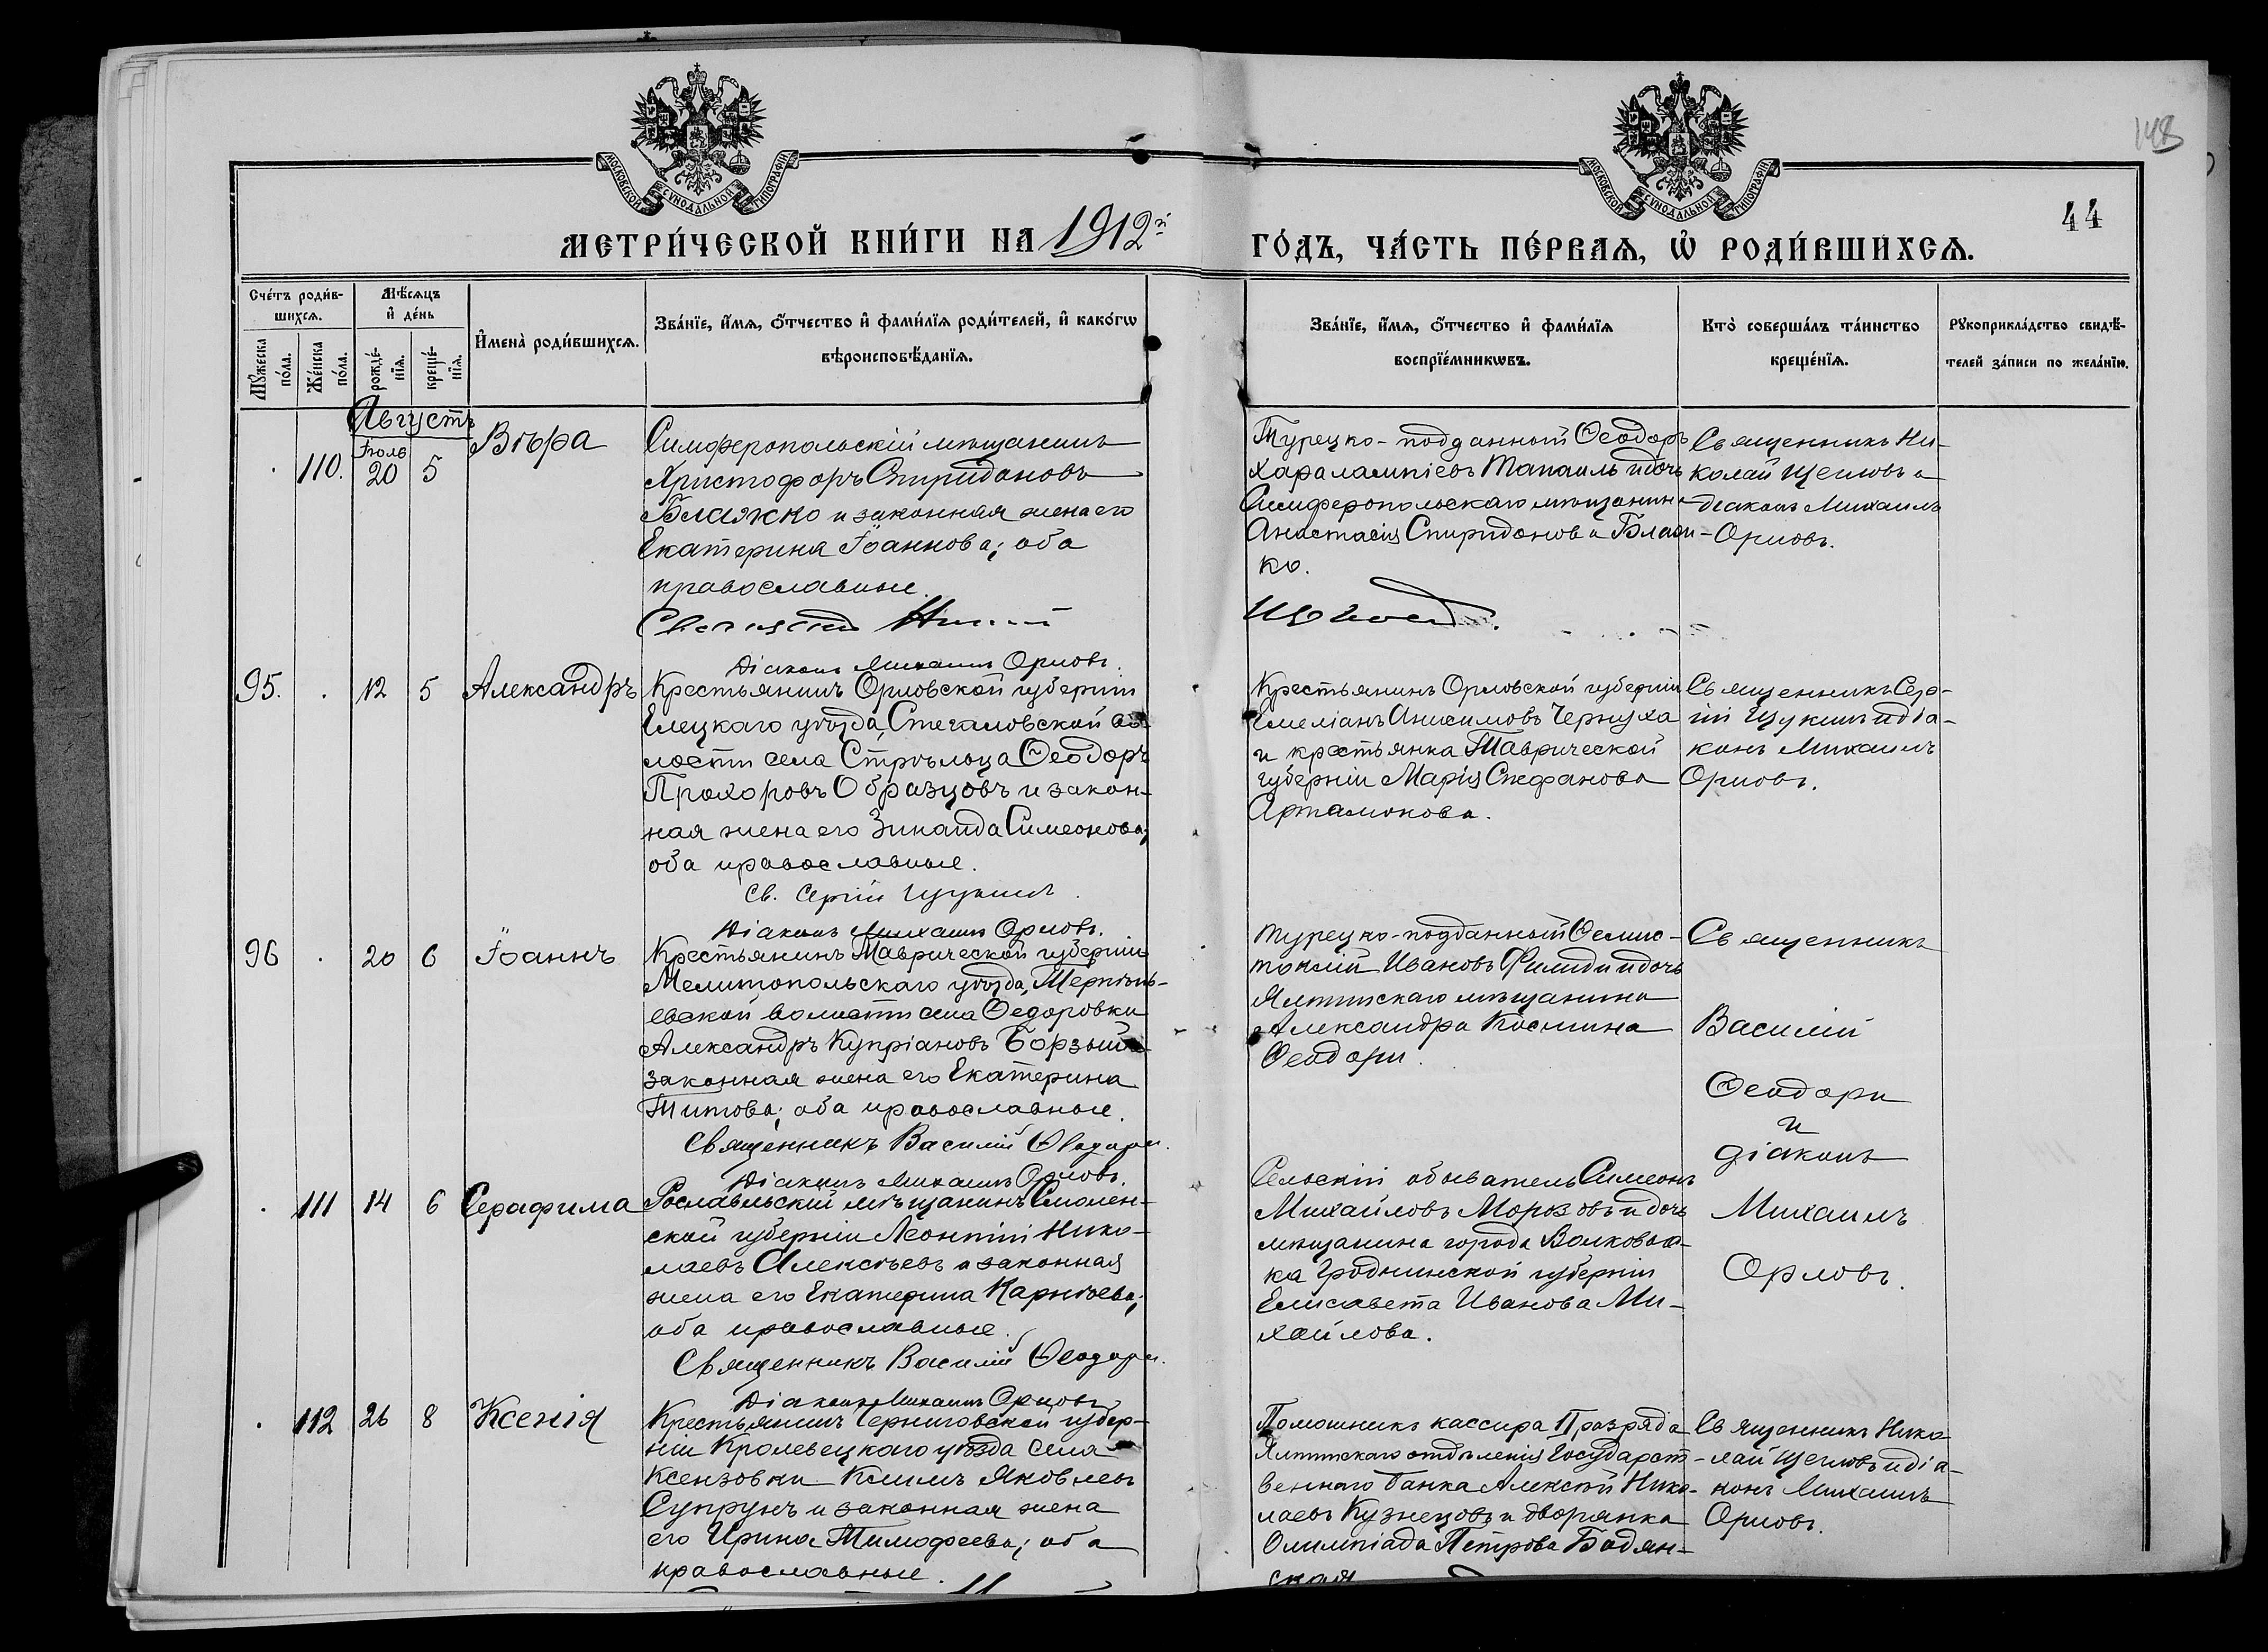 148
44
МОСКОВСКОЙ СѴНОДАЛЬНОЙ ТИПОГРАФІИ
МОСКОВСКОЙ СѴНОДАЛЬНОЙ ТИПОГРАФІИ
МЕТРИ́ЧЕСКОЙ КНИ́ГИ НА 1912й
ГО́ДЪ, ЧА́СТЬ ПЕ́РВАЯ, Ѡ РОДИ́ВШИХСЯ.
Сче́тъ роди́в-
шихся.
Му́жеска по́ла.
Же́нска по́ла.
Мѣ́сяцъ
и де́нь
рожде́-
нїя.
креще́-
нїя.
Имена̀ роди́вшихся.
Зва́нїе, и́мя, о́тчество и фами́лїя роди́телей, и како́гѡ
вѣроисповѣ́данїя.
Зва́нїе, и́мя, о́тчество и фами́лїя
воспрїе́мникѡвъ.
Кто̀ соверша́лъ та́инство
креще́нїя.
Рукоприкла́дство свидѣ́-
телей за́писи по жела́нїю.
Августъ
Іюль
110. 20 5 Вѣра
Симферопольскій мѣщанинъ
Христофоръ Спиридоновъ
Блажко и законная жена его
Екатерина Іоаннова; оба
православные.
Діаконъ Михаилъ Орловъ.
Турецко-подданный Ѳеодоръ
Харалампіевъ и дочь
Симферопольскаго мѣщанина
Анастасія Спиридонова Блаж-
ко.
Священникъ Ни-
колай Щегловъ и
діаконъ Михаилъ
Орловъ.
95. 12 5 Александръ
Крестьянинъ Орловской губерніи
Елецкаго уѣзда, Стегаловской во-
лости села Стрѣльца Ѳеодоръ
Прохоровъ Образцовъ и закон-
ная жена его Зинаида Симеонова;
оба православные.
Св. Сергій Щукинъ.
Діаконъ Михаилъ Орловъ.
Крестьянинъ Орловской губерніи
Емеліанъ Анисимовъ Чернуха
и крестьянка Таврической
губерніи Марія Стефанова
Артамонова.
Священникъ Сер-
гій Щукинъ и діа-
конъ Михаилъ
Орловъ.
96 20 6 Іоаннъ
Крестьянинъ Таврической губерніи
Мелитопольскаго уѣзда, Терпѣнь-
евской волости села Ѳедоровки
Александръ Купріановъ Борзый и
законная жена его Екатерина
Титова; оба православные.
Священникъ Василій Ѳеодори.
Діаконъ Михаилъ Орловъ.
Турецко-подданный Ѳемис-
токлій Ивановъ Филиди и дочь
Ялтинскаго мѣщанина
Александра Космина
Ѳеодори.
Священникъ
Василій
Ѳеодори
и
діаконъ
Михаилъ
Орловъ.
111 14 6 Серафима
Рославльскій мѣщанинъ Смолен-
ской губерніи Леонтій Нико-
лаевъ Алексѣевъ и законная
жена его Екатерина Карнѣева;
оба православные.
Священникъ Василій Ѳеодори.
Діаконъ Михаилъ Орловъ.
Сельскій обыватель Симеонъ
Михайловъ Морозовъ и дочь
мѣщанина города Волковыс-
ка Гродненской губерніи
Елисавета Иванова Ми-
хайлова.
112 26 8 Ксенія
Крестьянинъ Черниговской губер-
ніи Кролевецкаго уѣзда села
Ксензовки Климъ Яковлевъ
Супрунъ и законная жена
его Ирина Тимофеева; оба
православные.
Помошникъ кассира II разряда
Ялтинскаго отдѣленія Государст-
веннаго банка Алексѣй Нико-
лаевъ Кузнецовъ и дворянка
Олимпіада Петрова Бодян-
ская
Священникъ Нико
лай Щегловъ и діа-
конъ Михаилъ
Орловъ.